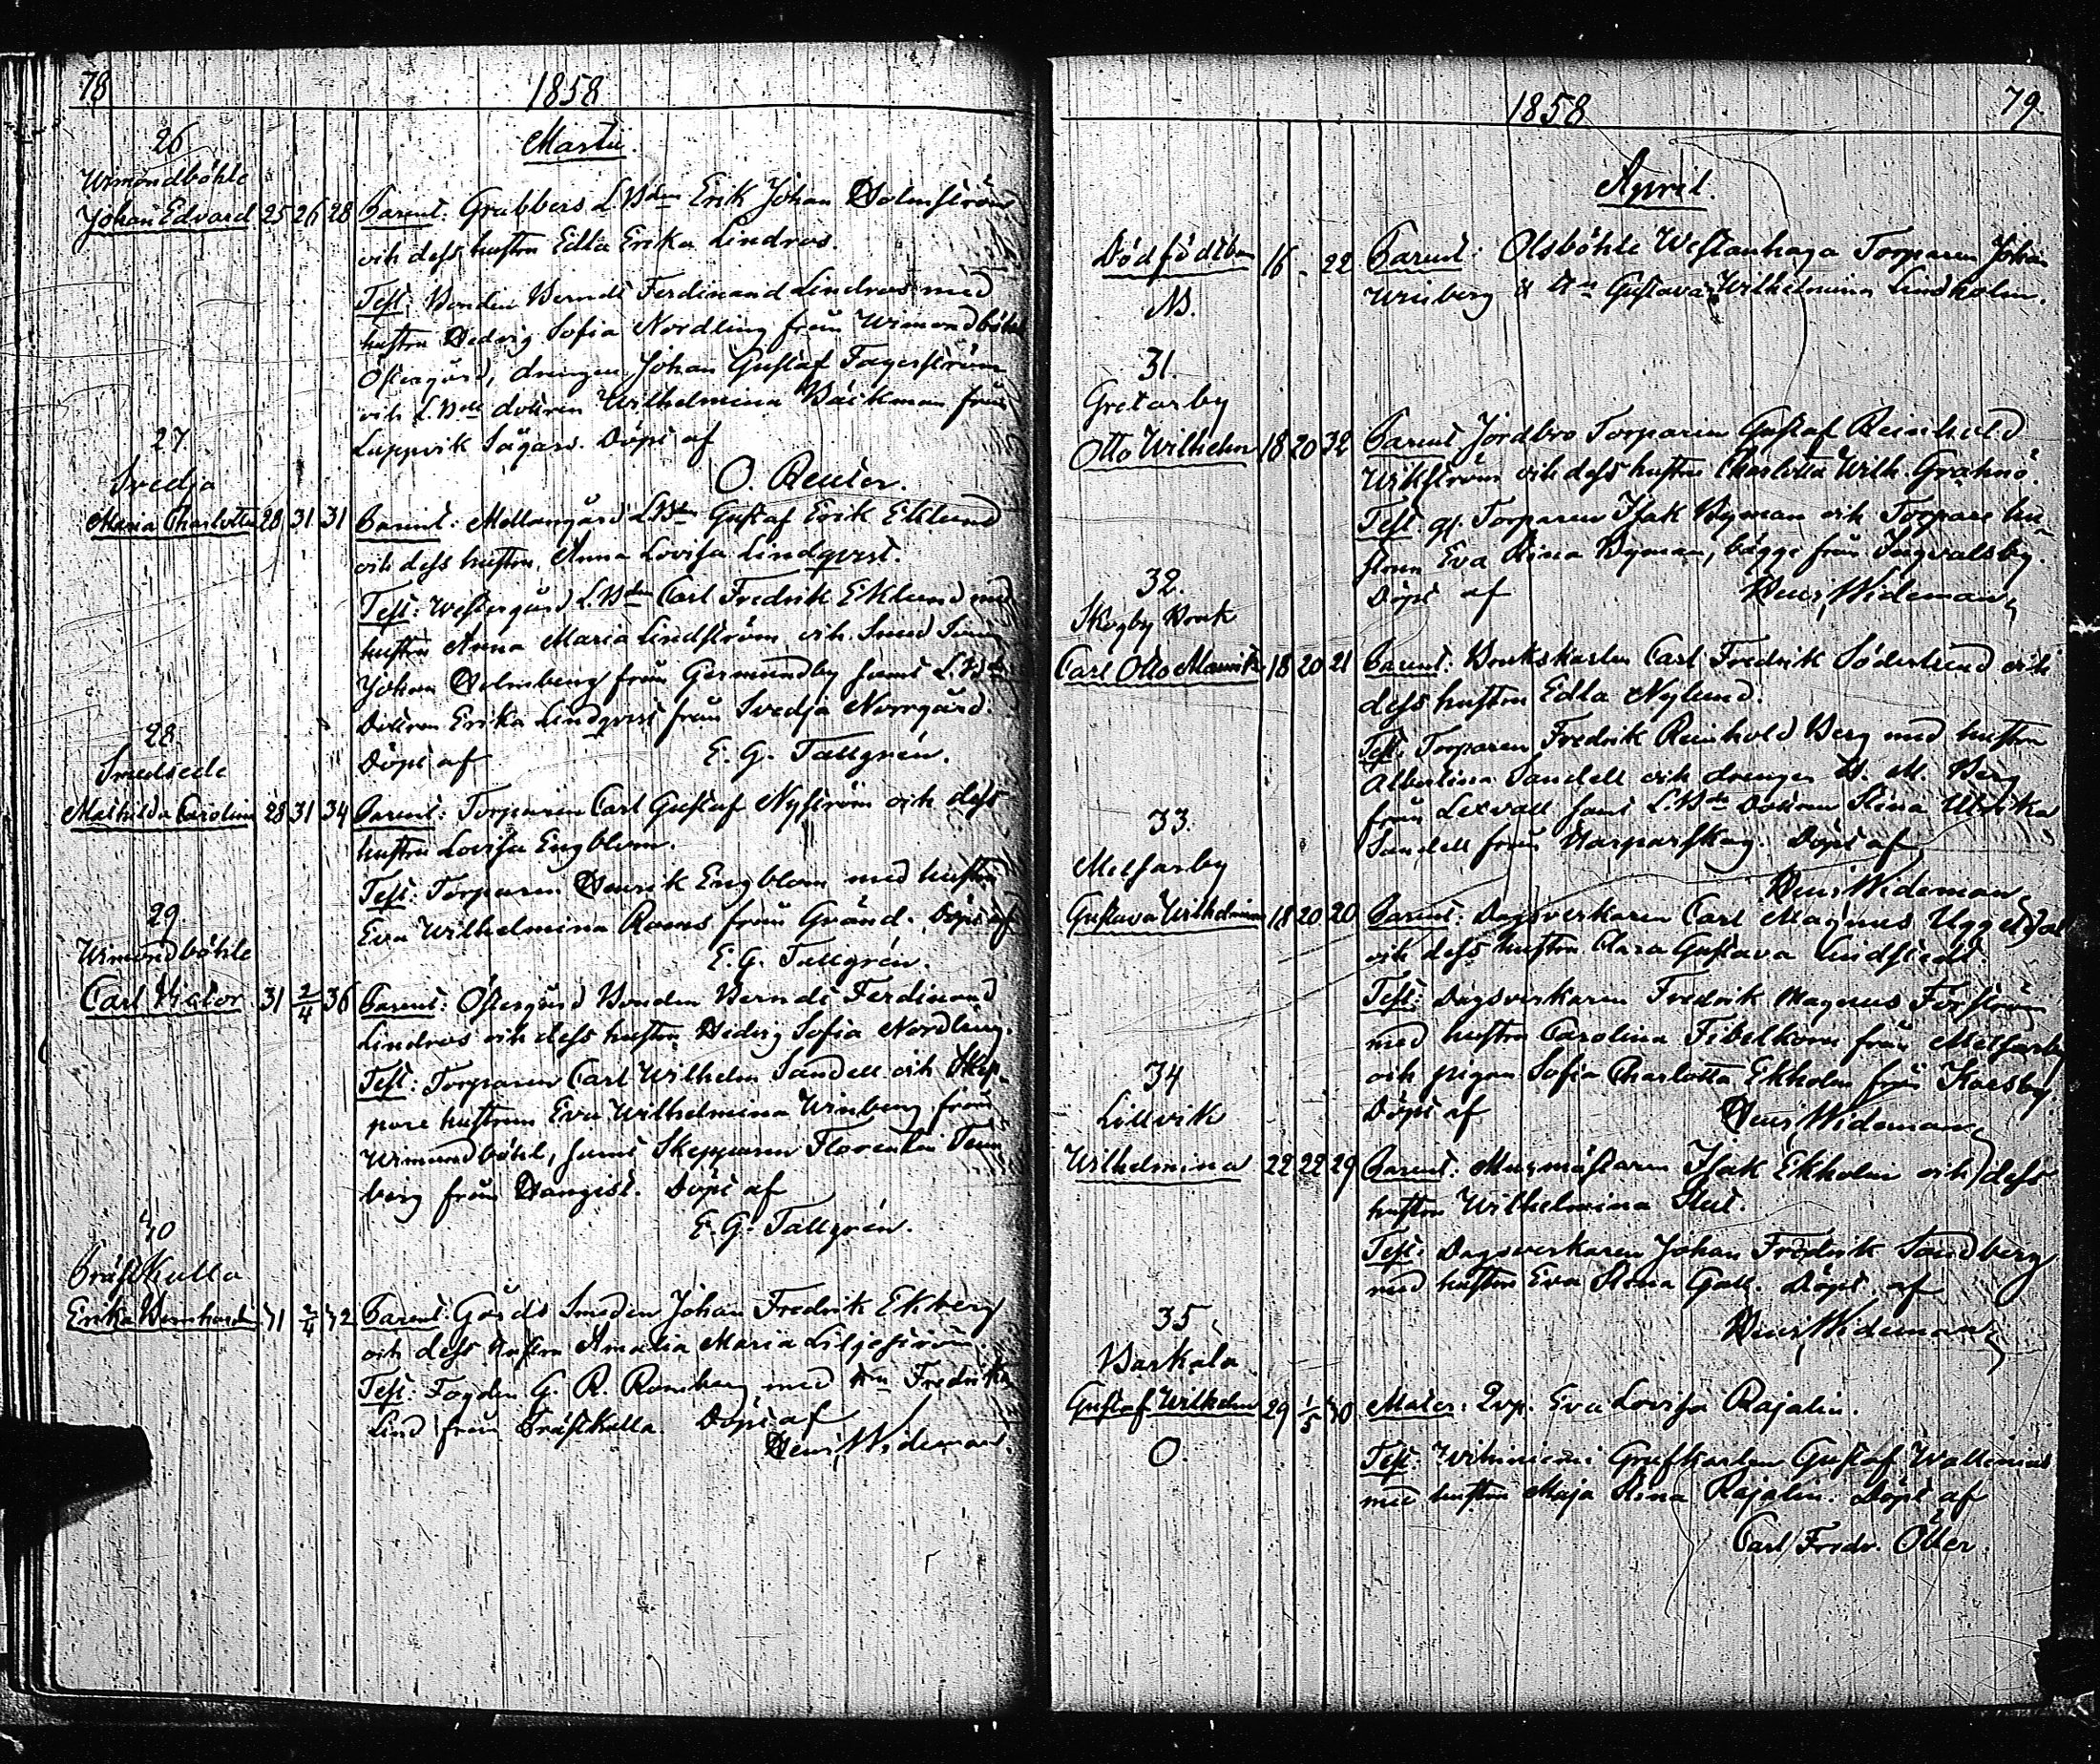 78
1858
Martii.
26
Wimondböhle
Johan Edvard 25 26 28 Parent: Grabbers LBdn Erik Johan Holmström
och dess hustru Edla Erika Lindros.
Test: Bonden Berndt Ferdinand Lindros med
hustru Hedvig Sofia Nordling från Wimondböhle
Östergård, drengen Johan Gustaf Fagerström
och LBde dottren Wilhelmina Bäckman från
Luppvik Sågars. Döpt af
O. Reuter.
27
Svedja
Maria Charlotta 28 31 31 Parent: Mellangård LBdn Gustaf Erik Eklund
och dess hustru Anna Lovisa Lindqvist.
Test: Westergård LBden Carl Fredrik Eklund med
hustru Anna Maria Lindström och Smed
Johan Holmberg från Germundby samt LBde
Dottren Erika Lindqvist från Svedja Norrgård.
Döpt af E. G. Tallgrén.
28
Smedsede
Mathilda Carolina 28 31 34 Parent: Torparen Carl Gustaf Nyström och dess
hustru Lovisa Engblom.
Test: Torparen Henrik Engblom med hustru
Eva Wilhelmina Roms från Gränd. Döpt af
E. G. Tallgrén.
29
Wimondböhle
Carl Victor 31 2/4 36 Parent: Östergård Bonden Berndt Ferdinand
Lindros och dess hustru Hedvig Sofia Nordling.
Test: Torparen Carl Wilhelm Sandell och Skep-
pare hustrun Eva Wilhelmina Winberg från
Wimondböhl, samt Skepparen Florentin Tenn
berg från Hangist. Döpt af
E. G. Tallgrén.
30
Prästkulla
Erika Bernhardi 31 2/4 32 Parent: Gårds Smeden Johan Fredrik Ekberg
och dess hustru Amalia Maria Liljeström.
Test: Fogden G. R. Romberg med Hn Fredrika
Lind från Prästkulla. Döpt af
Henr. Wideman.
1858
79
April.
Dödfödt barn 16 - 22 Parent: Olsböhle Westanhaga Torparen Johan
Winberg & Hn Gustava Wilhelmina Lindholm.
NB.
31.
Gretarby
Otto Wilhelm 18 20 32 Parent Jordbro Torparen Gustaf Reinhold
Wikström och dess hustru Charlotta Wilh. Grahnö.
Test: gl. Torparen Isak Nyman och Torpare hu-
strun Eva Stina Nyman, bägge från Ingvalsby.
Döpt af Henr. Wideman
32.
Skogby Bruk
Carl Otto Mauritz 18 20 21 Parent: Brukskarlen Carl Fredrik Söderlund och
dess hustru Edla Nylund.
Test: Torparen Fredrik Reinhold Berg med hustru
Albertina Sandell och drengen A. M. Berg
från Lexvall samt LBde Dottren Stina Ulrika
Sandell från Harparskog. Döpt af
Henr Wideman
33.
Melsarby
Gustava Wilhelmina 18 20 20 Parent: Dagsverkaren Carl Magnus Uggeldal
och dess hustru Clara Gustava Lindstedt.
Test: Dagsverkaren Fredrik Magnus Forström
med hustru Carolina Fibelkorn från Melsarby
och pigan Sofia Charlotta Ekholm från Kaesby.
Döpt af Henr. Wideman
34
Lillvik
Wilhelmina 22 22 29 Parent: Murmästaren Isak Ekholm och dess
hustru Wilhelmina Slut.
Test: Dagsverkaren Johan Fredrik Sandberg
med hustru Eva Stina Gall. Döpt af
Henr. Wideman
35
Barkala
Gustaf Wilhelm 29 1/5 30 Mater: Qvp. Eva Lovisa Rajalin.
O. Test: Grufkarlen Gustaf Wallenius
med hustru Maja Stina Rajalin. Döpt af
Carl Fredr. Öller.